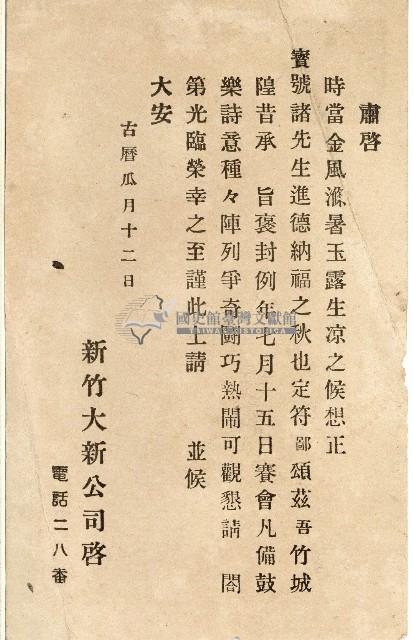 肅啓
時當金風滌暑玉露生凉之候想正
寶號諸先生進德納福之秋也定符鄙頌茲吾竹城
隍昔承 旨褒封例年七月十五日賽會凡備鼓
樂詩意種々陣列爭奇鬪巧熱鬧可觀懇請 閤
第光臨榮幸之至謹此上請 並候
大安
古曆瓜月十二日
新竹大新公司啓
電話二八番
國史館臺灣文獻館
TAIWAN HISTORICA